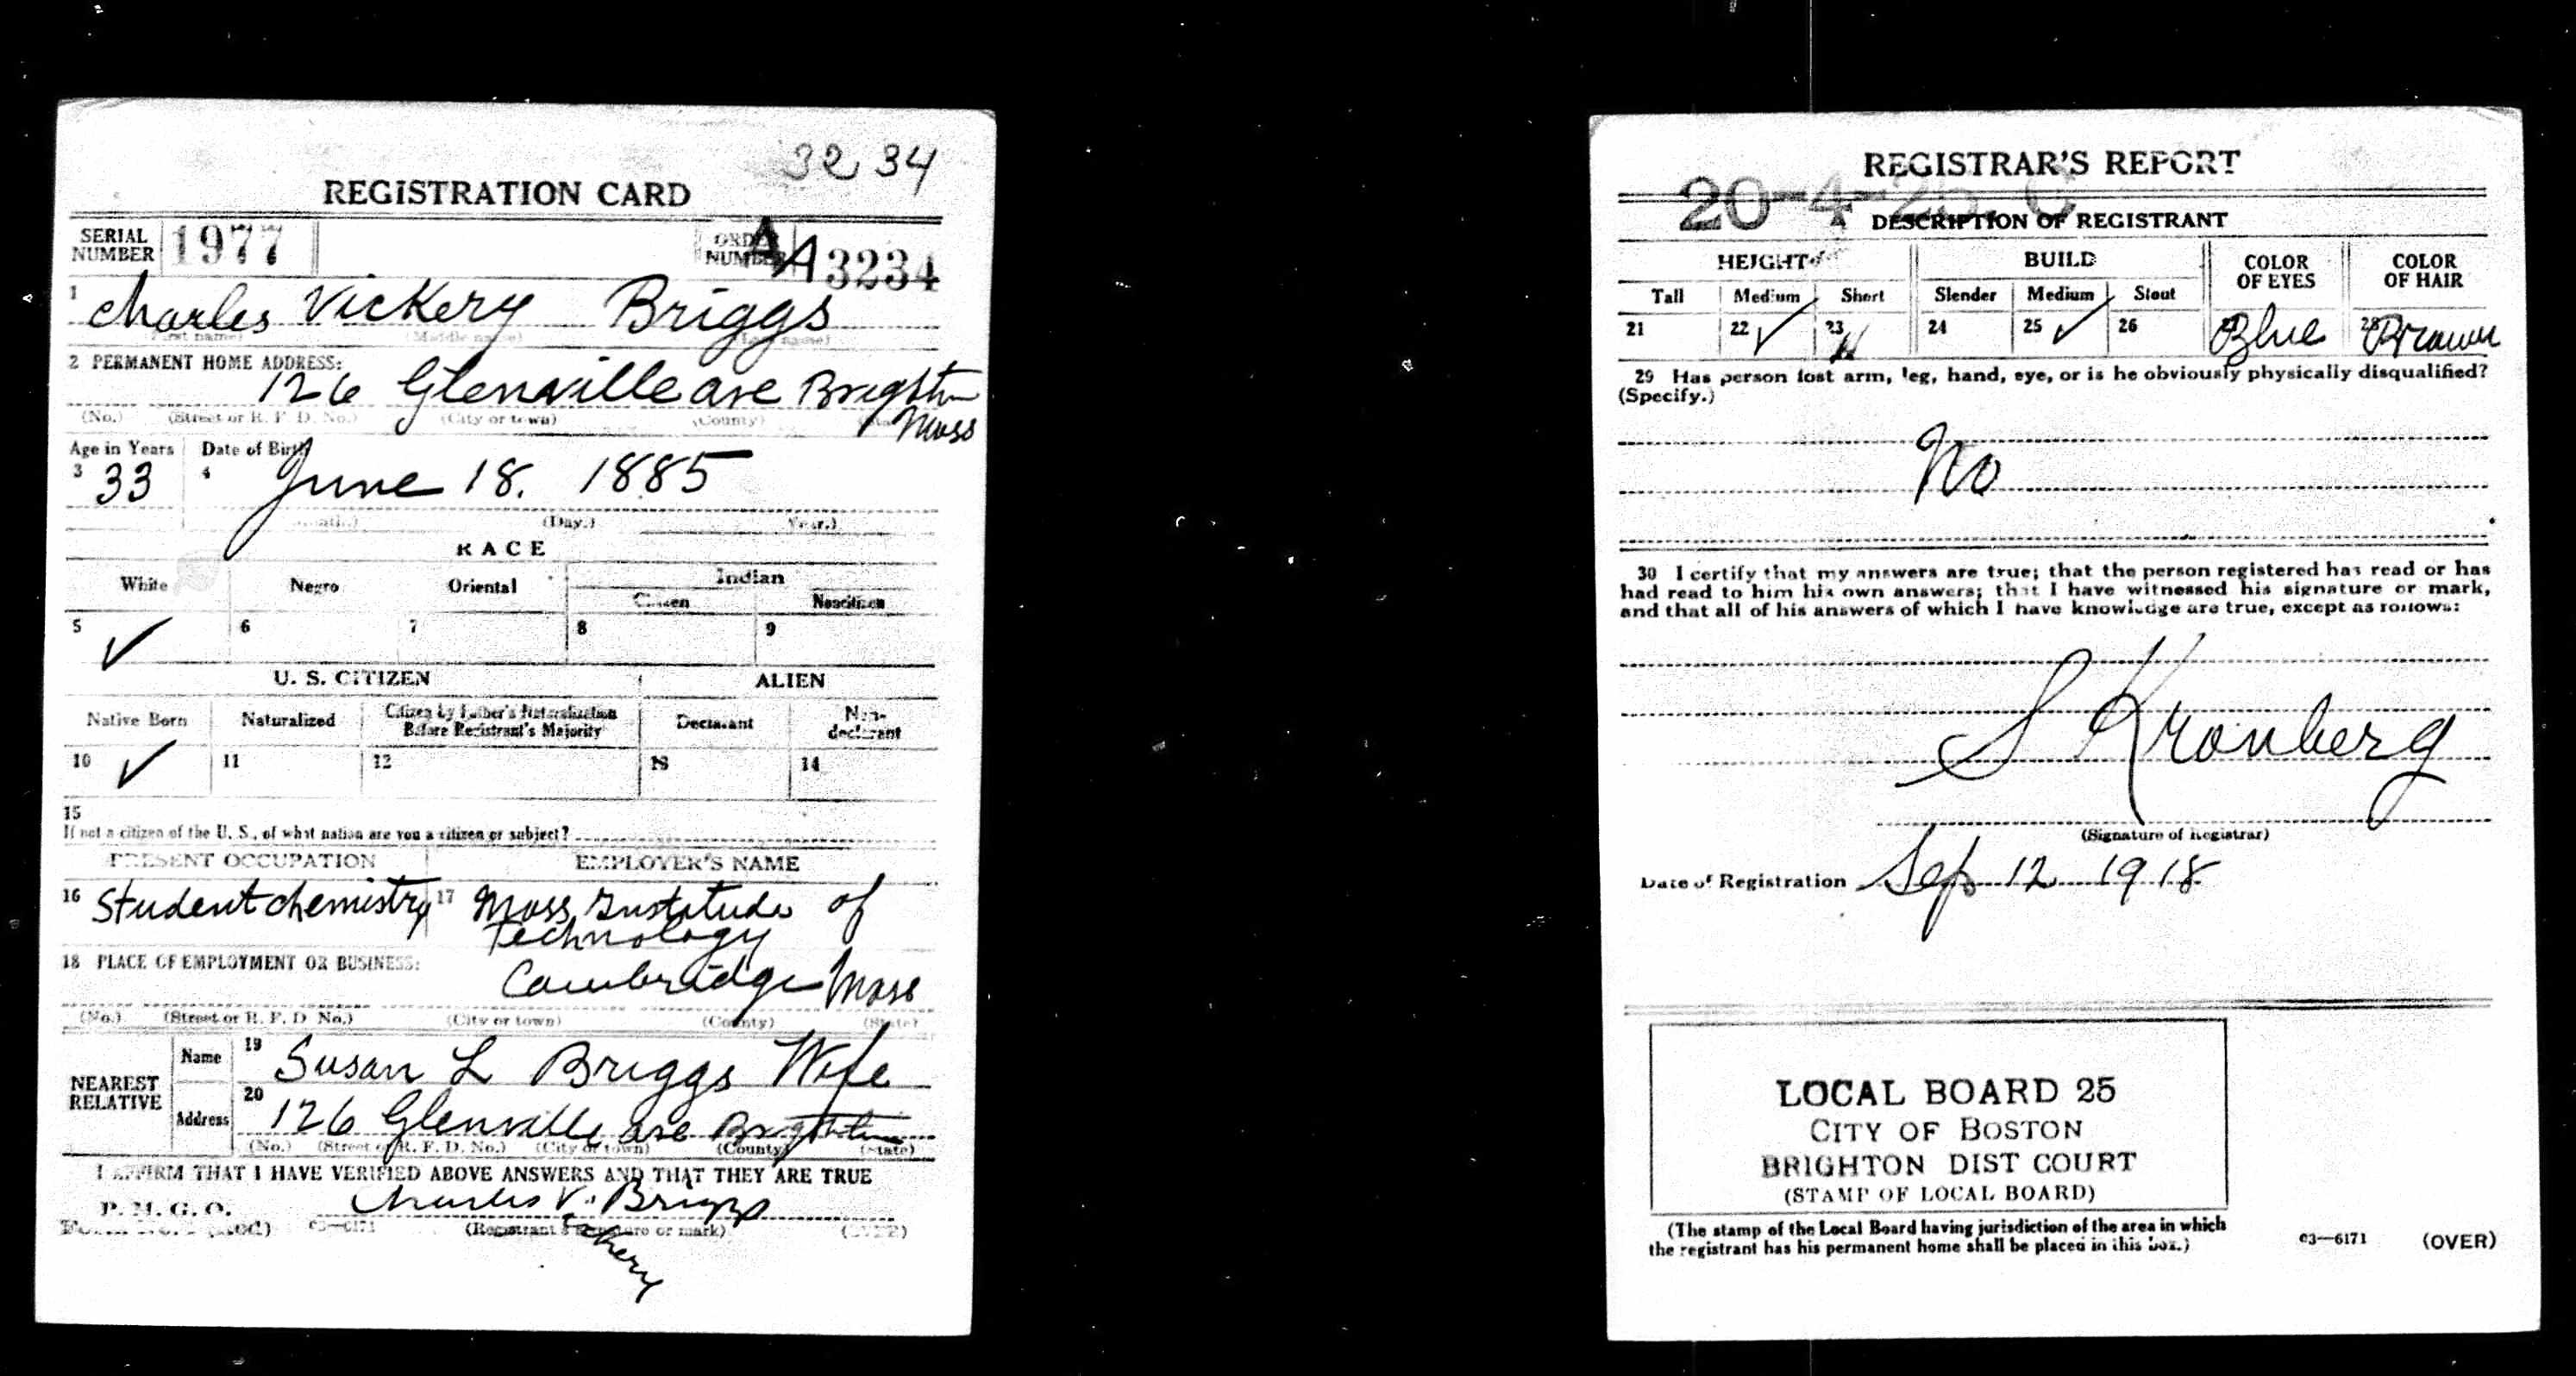 32 34
REGISTRATION CARD
SERIAL NUMBER 1977 ORDER NUMBER A A 3234
1 Charles Vickery Briggs
(First name) (Middle name) (Last name)
2 PERMANENT HOME ADDRESS:
126 Glenville ave Brighton
Mass
(No.) (Street or R. F. D. No.) (City or town) (County)
Age in Years Date of Birth
3 33 4 June 18. 1885
(Day.) (Year.)
RACE
White Negro Oriental Indian
Citizen Noncitizen
5 ✓ 6 7 8 9
U. S. CITIZEN ALIEN
Native Born Naturalized Citizen by Father's Naturalization Before Registrant's Majority Declarant Non-declarant
10 ✓ 11 12 13 14
15
If not a citizen of the U. S., of what nation are you a citizen or subject?
PRESENT OCCUPATION EMPLOYER'S NAME
16 Student chemistry 17 Mass Institude of
Technology
18 PLACE OF EMPLOYMENT OR BUSINESS:
Cambridge Mass
(No.) (Street or R. F. D. No.) (City or town) (County) (State)
NEAREST RELATIVE
Name 19 Susan L Briggs Wife
Address 20 126 Glenville ave Brighton
(No.) (Street or R. F. D. No.) (City or town) (County) (State)
I AFFIRM THAT I HAVE VERIFIED ABOVE ANSWERS AND THAT THEY ARE TRUE
P. M. G. O.
Charles V. Briggs
03—6171 (Registrant's signature or mark) (OVER)
REGISTRAR'S REPORT
20-4-25. C
DESCRIPTION OF REGISTRANT
HEIGHT BUILD COLOR OF EYES COLOR OF HAIR
Tall Medium Short Slender Medium Stout
21 22 ✓ 23 24 25 ✓ 26 27 Blue 28 Brown
29 Has person lost arm, leg, hand, eye, or is he obviously physically disqualified?
(Specify.)
No
30 I certify that my answers are true; that the person registered has read or has
had read to him his own answers; that I have witnessed his signature or mark,
and that all of his answers of which I have knowledge are true, except as follows:
S Kronberg
(Signature of Registrar)
Date of Registration Sep 12 1918
LOCAL BOARD 25
CITY OF BOSTON
BRIGHTON DIST COURT
(STAMP OF LOCAL BOARD)
(The stamp of the Local Board having jurisdiction of the area in which
the registrant has his permanent home shall be placed in this box.)
03—6171 (OVER)